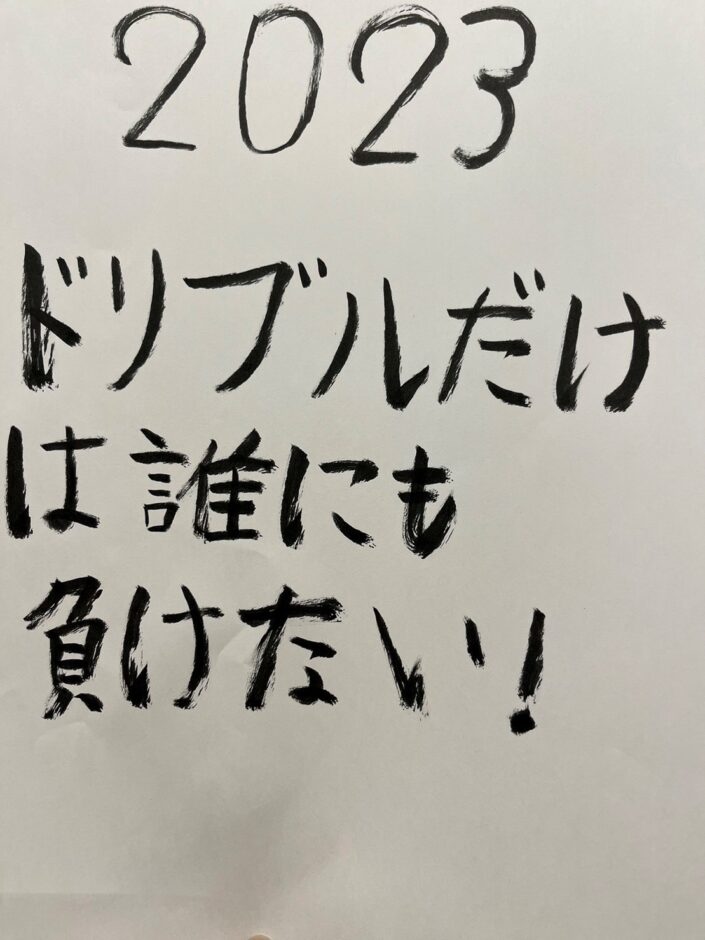 2023
ドリブルだけ
は誰にも
負けない!